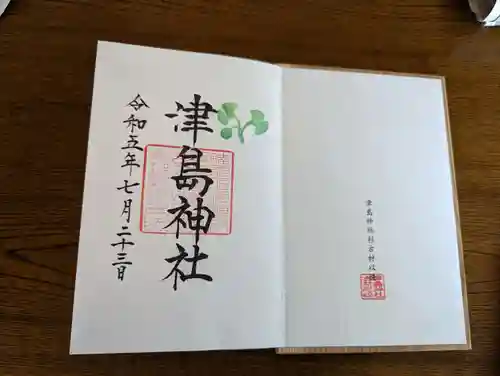 津島神社
令和五年七月二十三日
津島神社